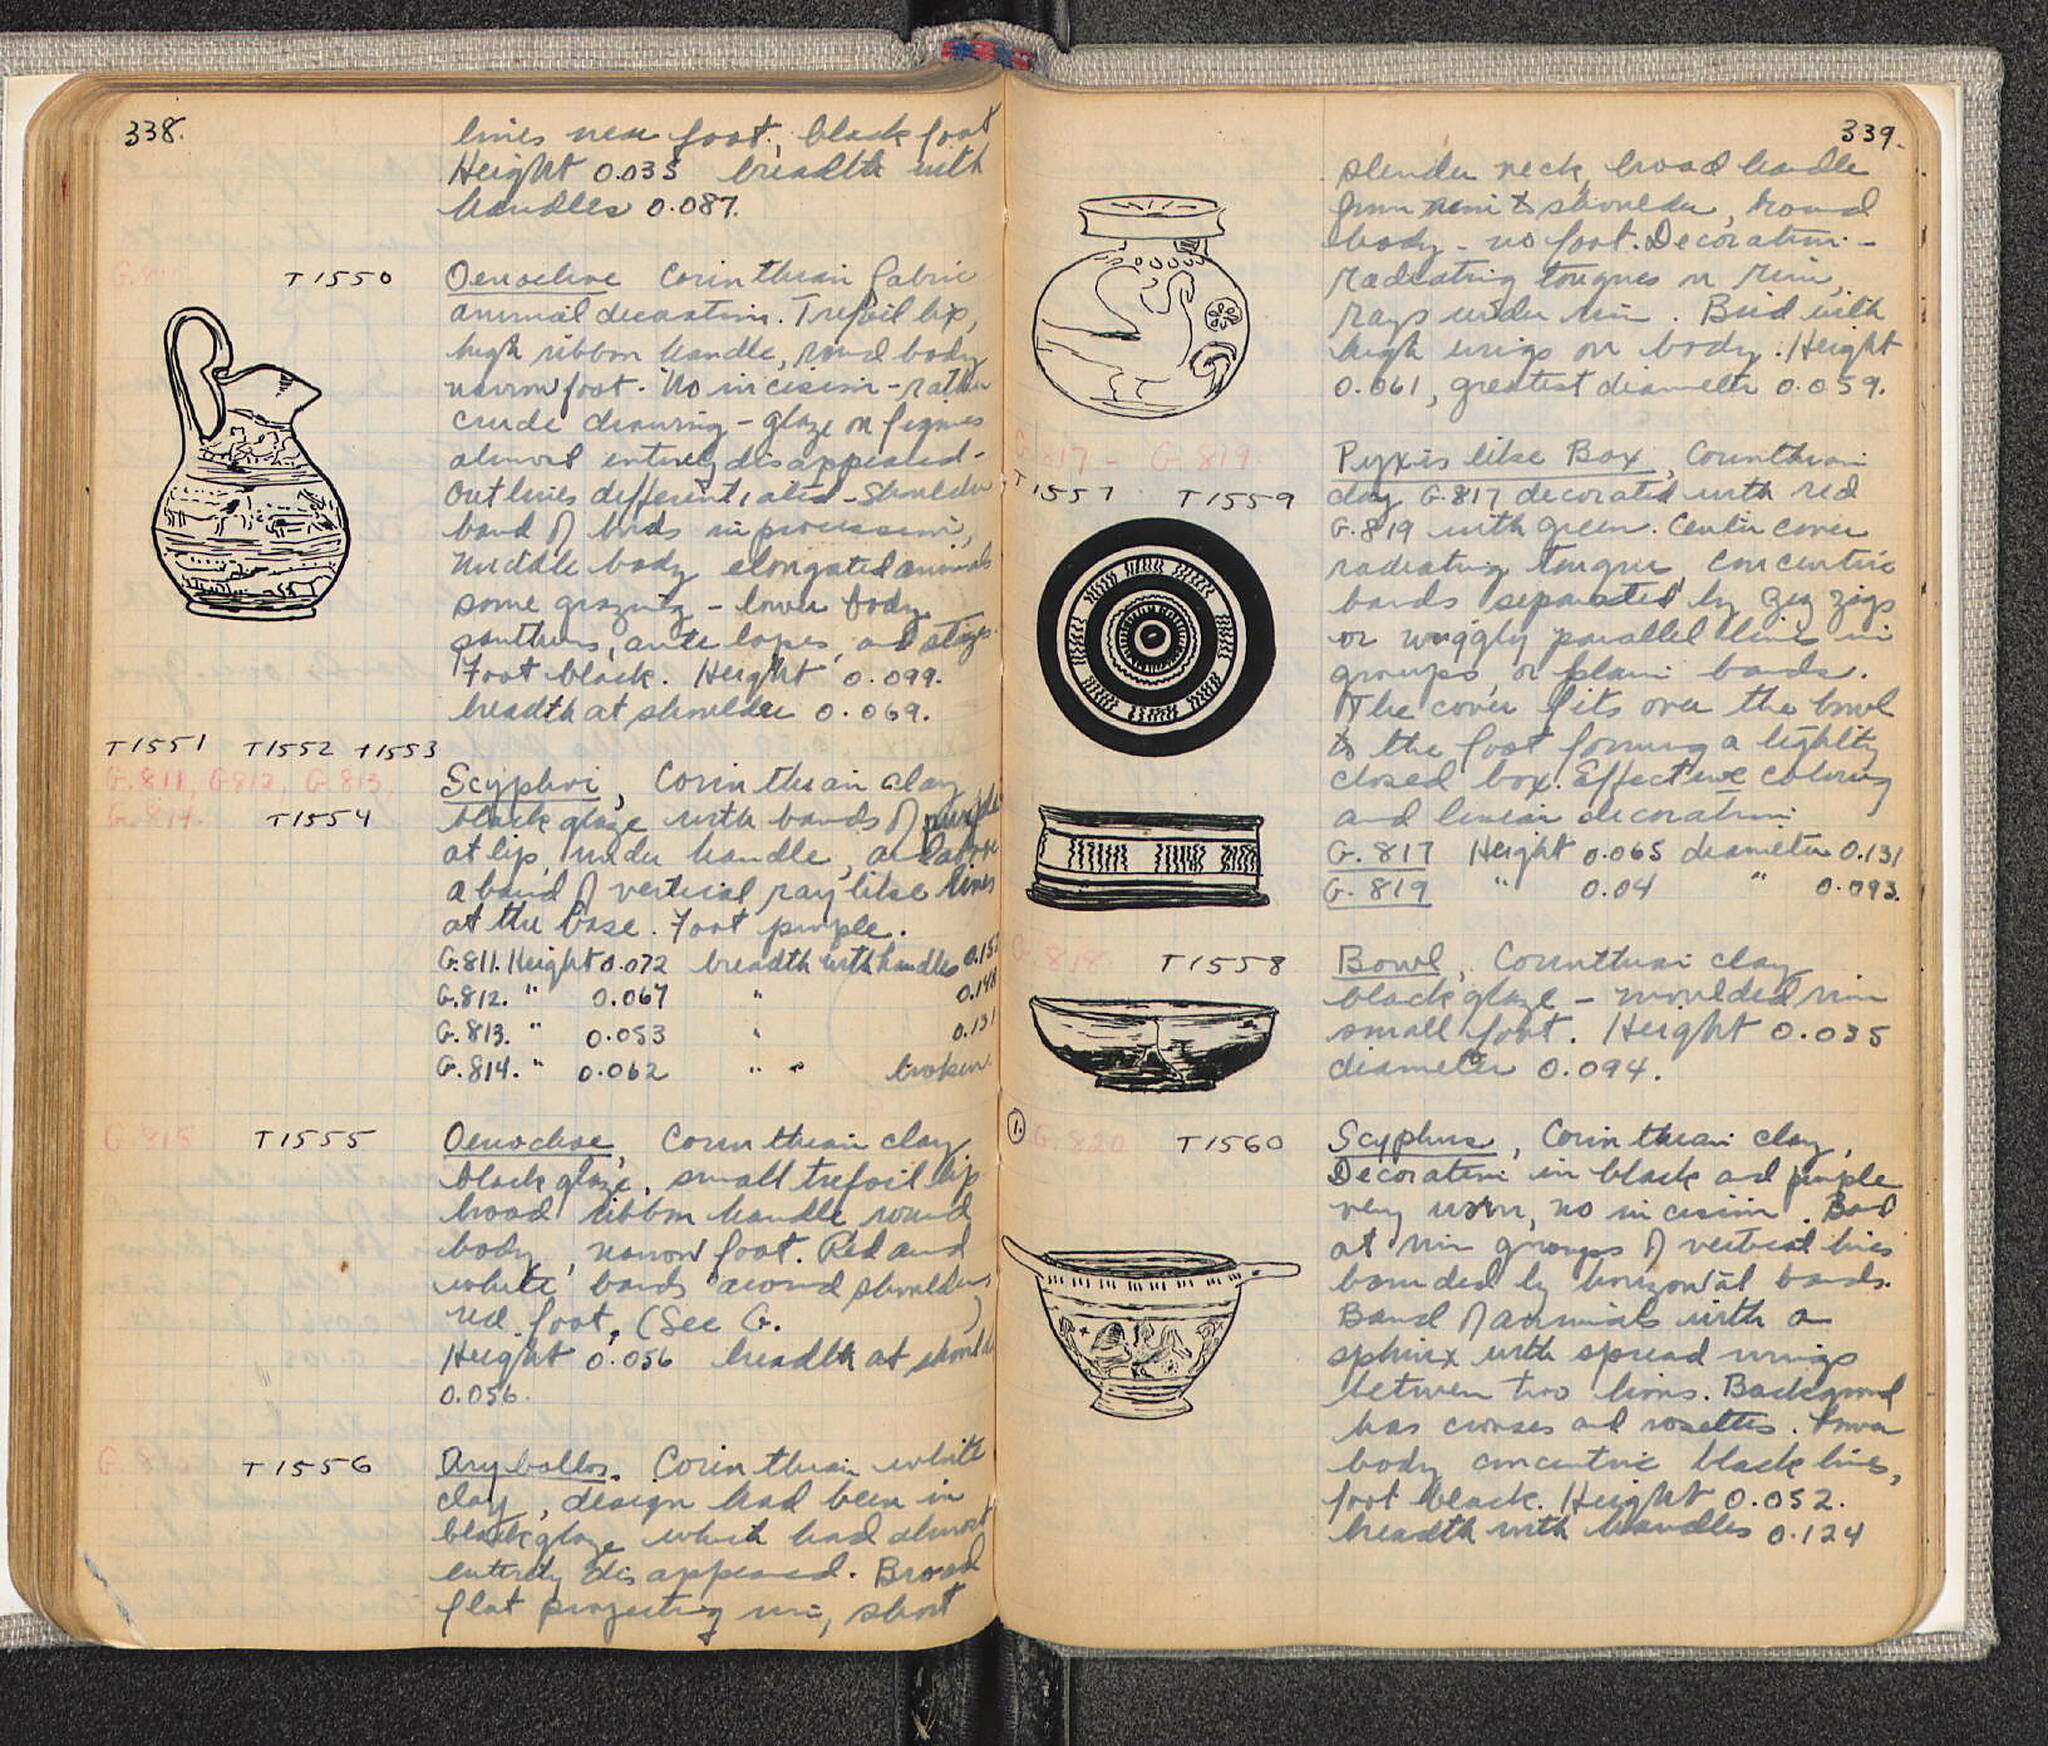 338.
lines near foot, black foot
Height 0.035 breadth with
handles 0.087.
T 1550
Oenochoe Corinthian fabric
animal decoration. Trefoil lip,
high ribbon handle, round body
narrow foot. No incision - rather
crude drawing - glaze on figures
almost entirely disappeared -
outlines differentiated - Shoulder
band of birds in procession,
Middle body elongated animals
some grazing - lower body
panthers, antelopes, and stags.
Foot black. Height 0.099.
breadth at shoulder 0.069.
T1551 T1552 T1553
G.811, G812, G.813,
G.814. T1554
Scyphoi, Corinthian clay
black glaze with bands of purple
at lip, under handle, and above
a band of vertical ray like lines
at the base. Foot purple.
G.811. Height 0.072 breadth with handles 0.152
G.812. " 0.067 " 0.148
G.813. " 0.053 " 0.131
G.814. " 0.062 " " broken.
G.815 T1555
Oenochoe, Corinthian clay
black glaze, small trefoil lip
broad ribbon handle, round
body, narrow foot. Red and
white bands around shoulders
red foot, (See G. )
Height 0.056 breadth at shoulder
0.056.
T 1556
Aryballos. Corinthian white
clay, design had been in
black glaze which had almost
entirely disappeared. Broad
flat projecting rim, short
339.
slender neck, broad handle
from rim to shoulder, round
body - no foot. Decoration -
radiating tongues on rim,
rays under rim. Bird with
high wings on body. Height
0.061, greatest diameter 0.059.
G.817 - G.819.
T1557 T1559
Pyxis like Box, Corinthian
clay G.817 decorated with red
G.819 with green. Center cover
radiating tongues, concentric
bands separated by zig zigs
or wriggly parallel lines in
groups, or plain bands.
The cover fits over the bowl
to the foot forming a tightly
closed box. Effective coloring
and linear decoration
G. 817 Height 0.065 diameter 0.131
G. 819 " 0.04 " 0.093.
G.818. T1558
Bowl, Corinthian clay
black glaze - moulded rim
small foot. Height 0.035
diameter 0.094.
1. G.820 T1560
Scyphus, Corinthian clay,
Decoration in black and purple
very worn, no incision. Band
at rim groups of vertical lines
bounded by horizontal bands.
Band of animals with a
sphinx with spread wings
between two lions. Background
has crosses and rosettes. Lower
body concentric black lines,
foot black. Height 0.052.
breadth with handles 0.124